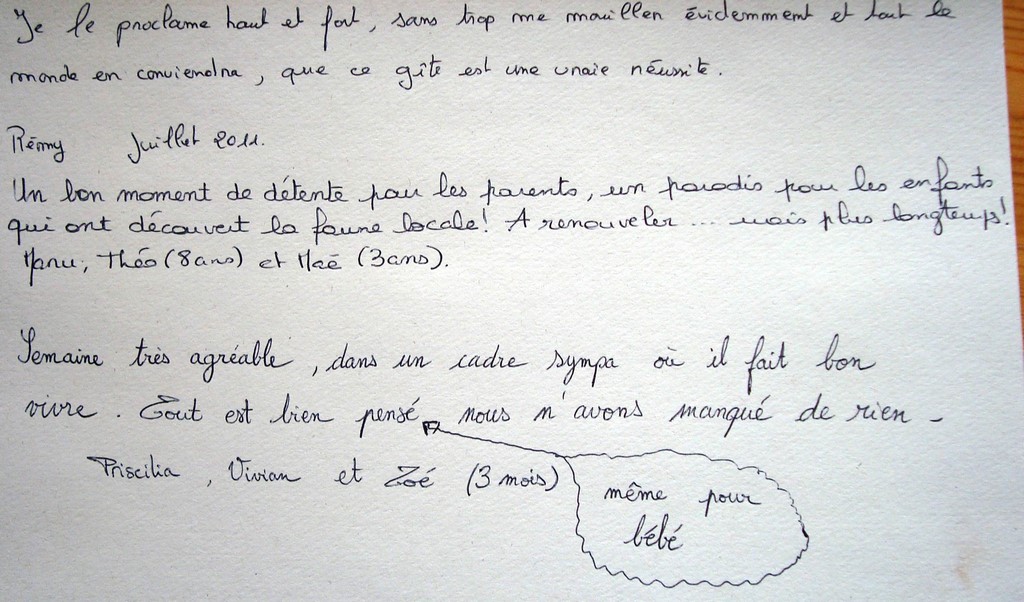 Je le proclame haut et fort, sans trop me mouiller évidemment et tout le
monde en conviendra, que ce gîte est une vraie réussite.
Rémy Juillet 2011.
Un bon moment de détente pour les parents, un paradis pour les enfants
qui ont découvert la faune locale! A renouveler ... mais plus longtemps!
Manu, Théo (8 ans) et Maé (3 ans).
Semaine très agréable, dans un cadre sympa où il fait bon
vivre. Tout est bien pensé, nous n'avons manqué de rien -
Priscilia, Vivian et Zoé (3 mois)
même pour
bébé